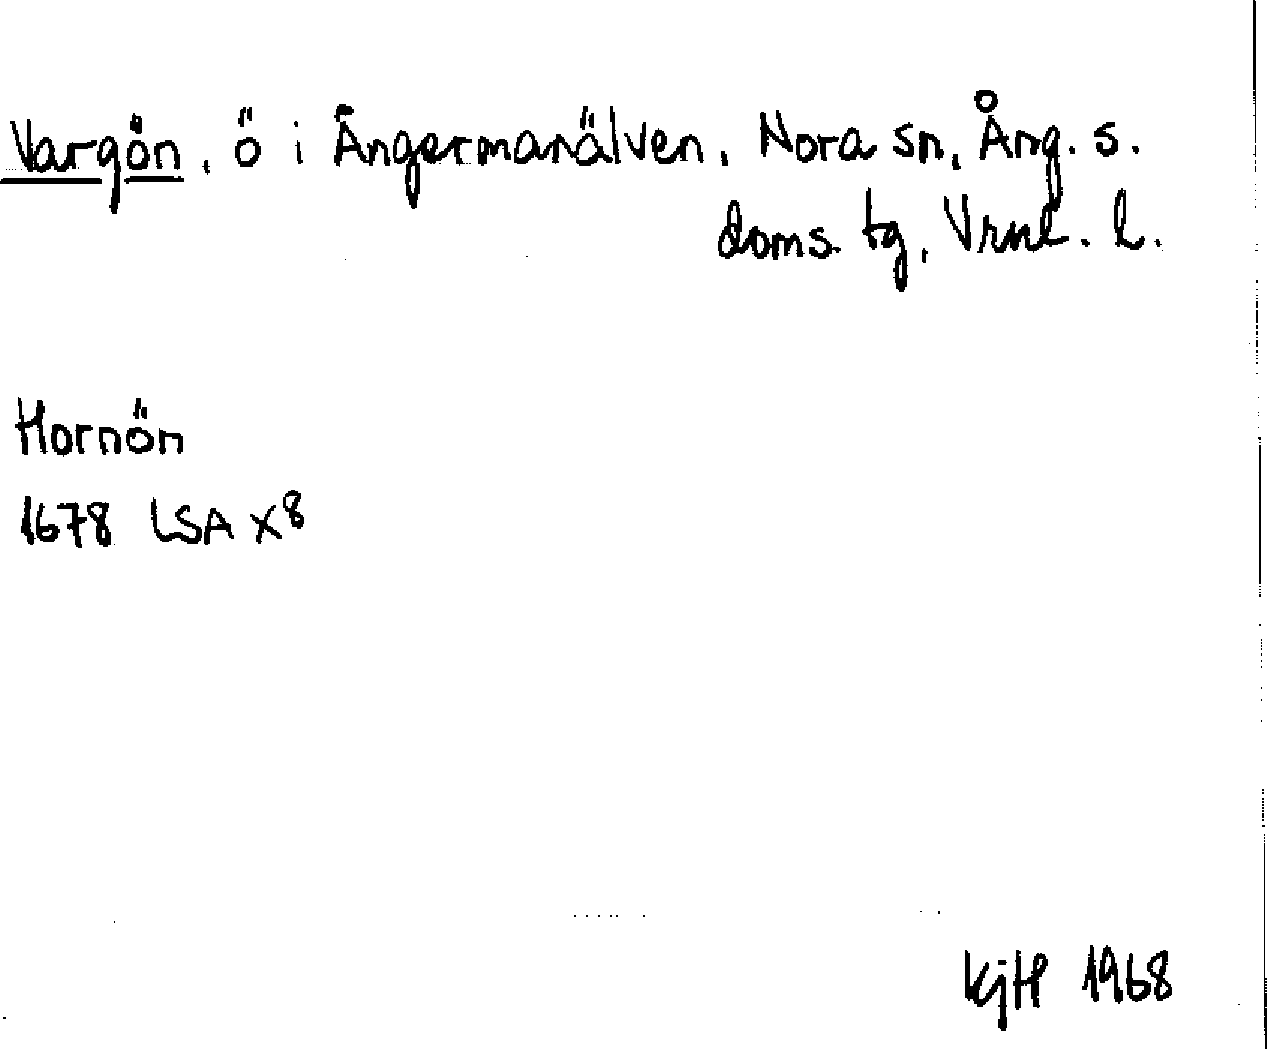 Vargön, ö i Ångermanälven, Nora sn, Ång. s.
doms. tg, Vrnl. l.
Hornön
1678 LSA X⁸
KjH 1968